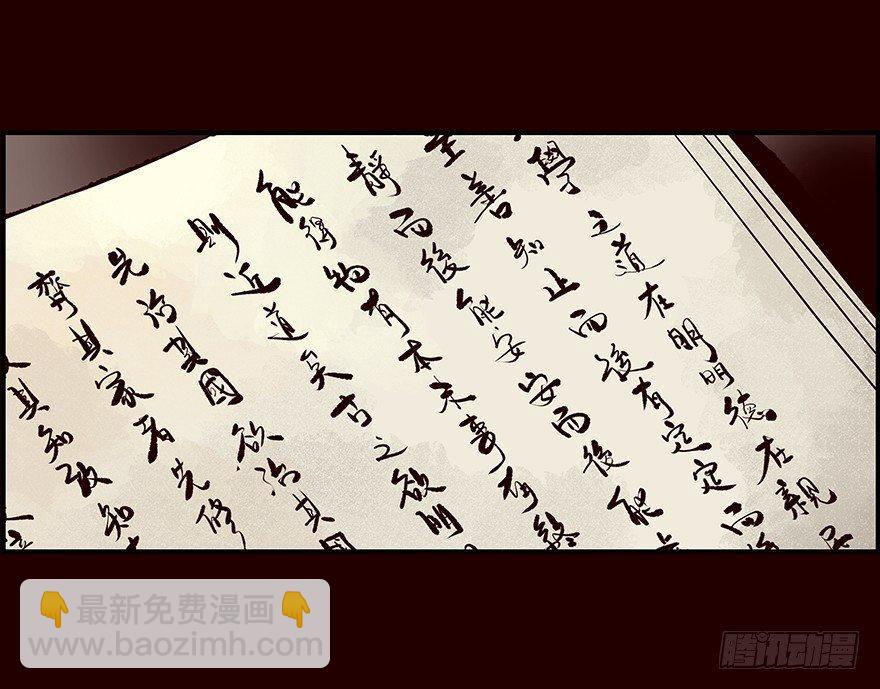 學之道在明明德在親民
至善知止而後有定定而後
靜而後能安安而後能
能得物有本末事有終
則近道矣古之欲明
先治其國欲治其國
齊其家者先修
其知致知
最新免费漫画
www.baozimh.com
腾讯动漫